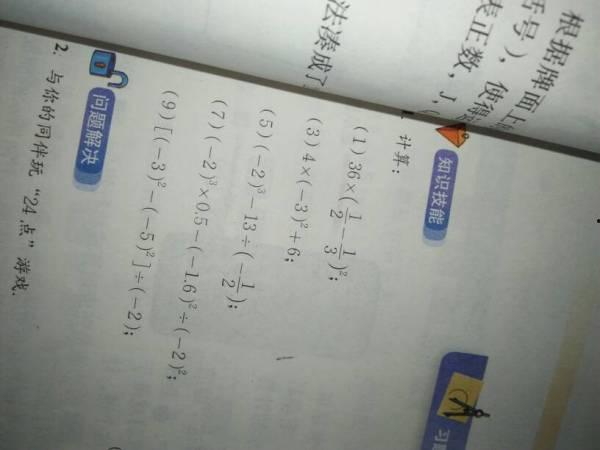 根据牌面上
括号），使得
表正数，J，
法凑成了
习
知识技能
计算：
(1) 36×(1/2-1/3)²；
(3) 4×(-3)²+6；
(5) (-2)³-13÷(-1/2)；
(7) (-2)³×0.5-(-1.6)²÷(-2)²；
(9) [(-3)²-(-5)²]÷(-2)；
问题解决
2. 与你的同伴玩“24点”游戏.